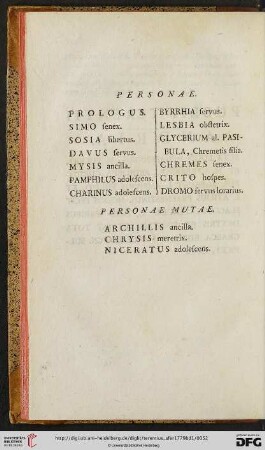 PERSONAE.
PROLOGUS.
SIMO senex.
SOSIA libertus.
DAVUS servus.
MYSIS ancilla.
PAMPHILUS adolescens.
CHARINUS adolescens.
BYRRHIA servus.
LESBIA obstetrix.
GLYCERIUM al. PASI-
BULA, Chremetis filia.
CHREMES senex.
CRITO hospes.
DROMO servus lorarius.
PERSONAE MUTAE.
ARCHILLIS ancilla.
CHRYSIS meretrix.
NICERATUS adolescens.
UNIVERSITÄTS-
BIBLIOTHEK
HEIDELBERG
http://digi.ub.uni-heidelberg.de/diglit/
© Universitätsbibliothek Heidelberg
gefördert durch die
DFG